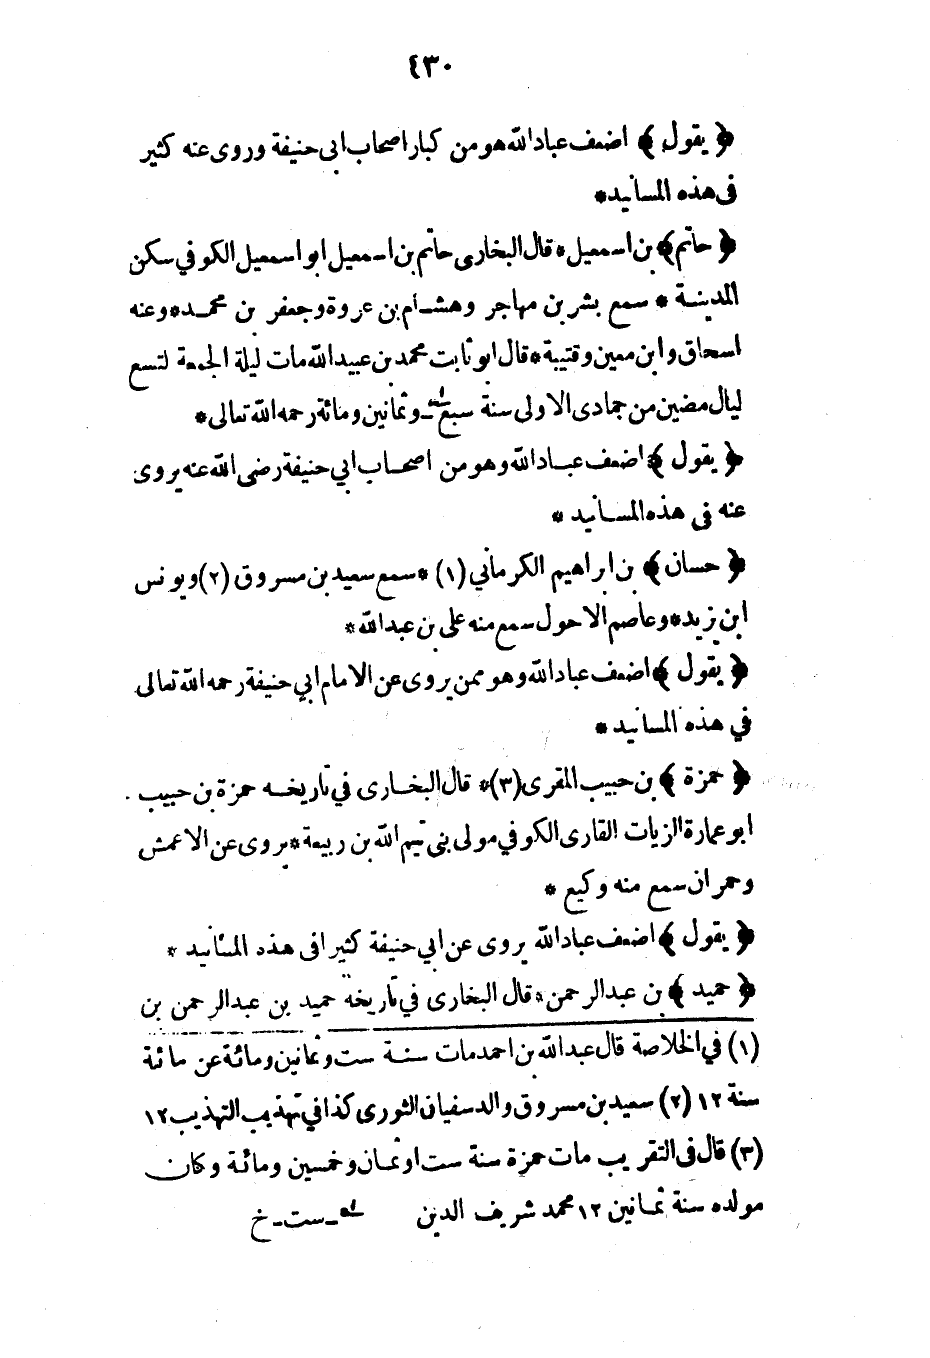 ٤٣٠
﴿ يقول ﴾ اضعف عباد الله هو من كبار اصحاب ابى حنيفة وروى عنه كثير
فى هذه المسانيد*
﴿ حاتم ﴾ بن اسمعيل * قال البخارى حاتم بن اسمعيل ابو اسمعيل الكوفي سكن
المدينة * سمع بشر بن مهاجر وهشام بن عروة وجعفر بن محمد * وعنه
اسحاق وابن معين وقتيبة * قال ابو ثابت محمد بن عبيد الله مات ليلة الجمعة لتسع
ليال مضين من جمادى الاولى سنة سبع وثمانين ومائة رحمه الله تعالى *
﴿ يقول ﴾ اضعف عباد الله وهو من اصحاب ابي حنيفة رضى الله عنه يروى
عنه فى هذه المسانيد *
﴿ حسان ﴾ بن ابراهيم الكرماني (١) * سمع سعيد بن مسروق (٢) ويونس
ابن زيد * وعاصم الاحول سمع منه على بن عبد الله *
﴿ يقول ﴾ اضعف عباد الله وهو ممن يروى عن الامام ابي حنيفة رحمه الله تعالى
في هذه المسانيد *
﴿ حمزة ﴾ بن حبيب المقرى (٣) * قال البخارى في تاريخه حمزة بن حبيب
ابو عمارة الزيات القارى الكوفي مولى بنى تيم الله بن ربيعة * يروى عن الاعمش
وحمران سمع منه وكيع *
﴿ يقول ﴾ اضعف عباد الله يروى عن ابي حنيفة كثيرا فى هذه المسانيد *
﴿ حميد ﴾ بن عبد الرحمن * قال البخارى في تاريخه حميد بن عبد الرحمن بن
(١) في الخلاصة قال عبد الله بن احمد مات سنة ست وثمانين ومائة عن مائة
سنة ١٢ (٢) سعيد بن مسروق والد سفيان الثورى كذا في تهذيب التهذيب ١٢
(٣) قال فى التقريب مات حمزة سنة ست او ثمان وخمسين ومائة وكان
مولده سنة ثمانين ١٢ محمد شريف الدين ـ ست ـ خ